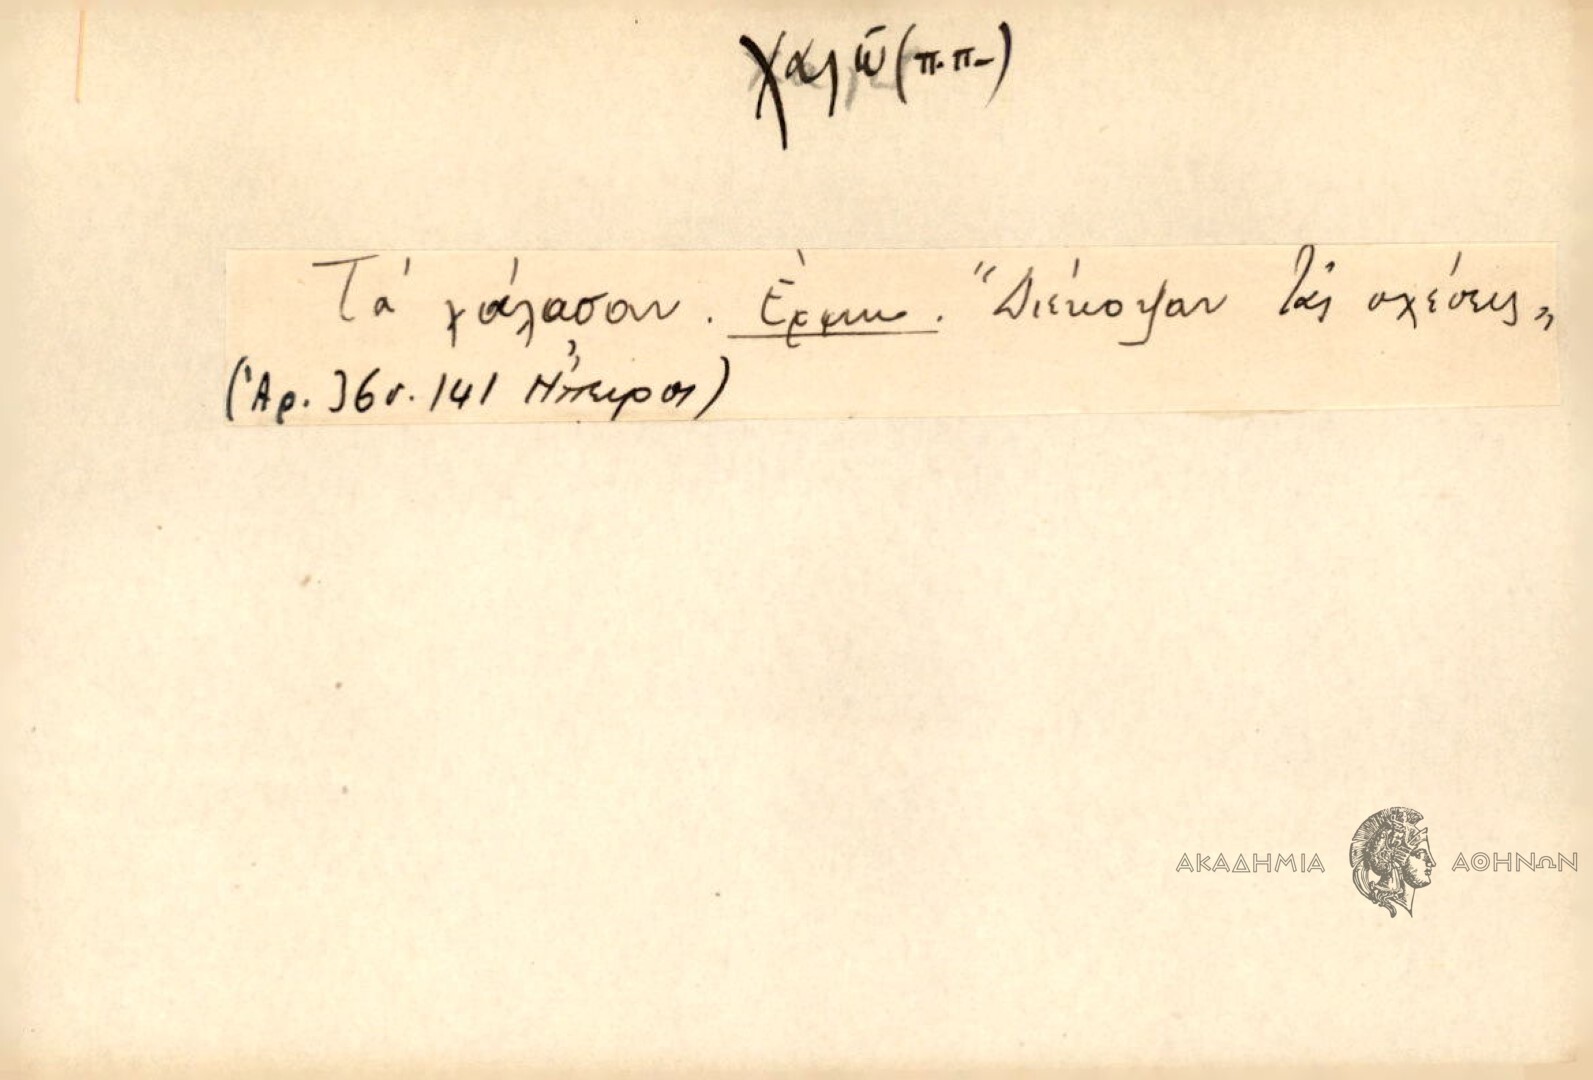 χαλῶ (π.π.)
Τά χάλασαν. Ἑρμην. "Διέκοψαν τάς σχέσεις„
(Ἀρ. 36 σ. 141 Ἤπειρος)
ΑΚΑΔΗΜΙΑ ΑΘΗΝΩΝ